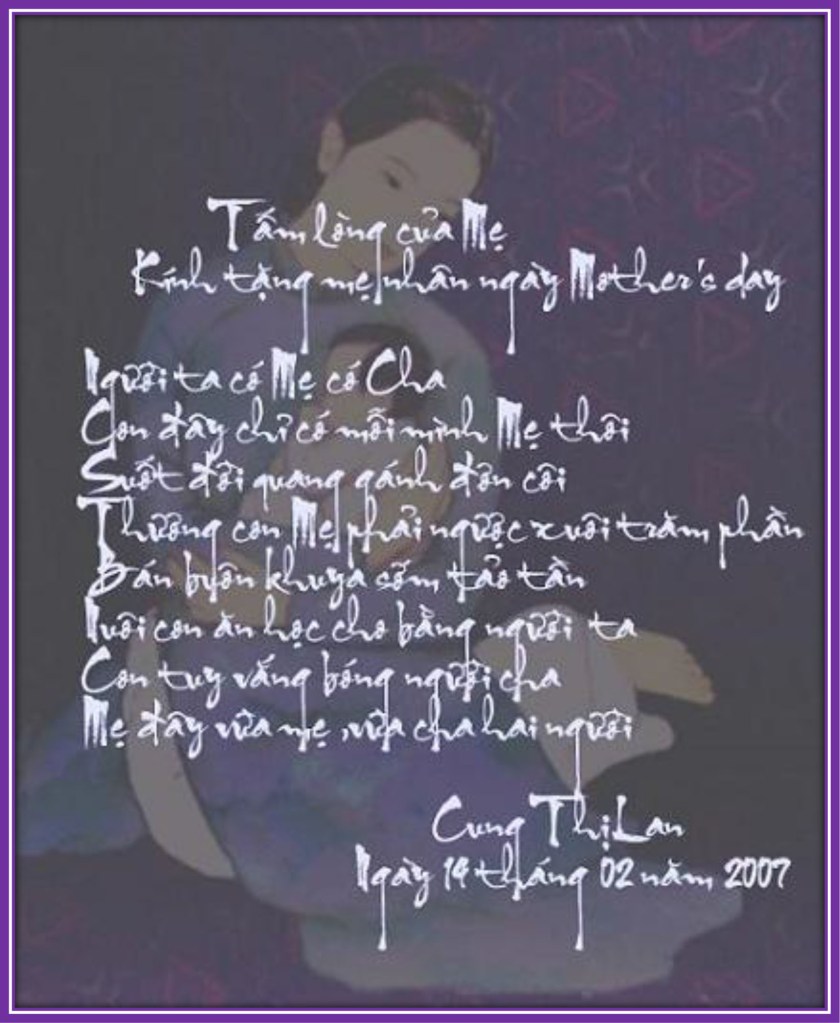 Tấm lòng của Mẹ
Kính tặng mẹ nhân ngày Mother's day
Người ta có Mẹ có Cha
Con đây chỉ có mỗi mình Mẹ thôi
Suốt đời quang gánh đơn côi
Thương con Mẹ phải ngược xuôi trăm phần
Bán buôn khuya sớm tảo tần
Nuôi con ăn học cho bằng người ta
Con tuy vắng bóng người cha
Mẹ đây vừa mẹ ,vừa cha hai người
Cung Thị Lan
Ngày 14 tháng 02 năm 2007